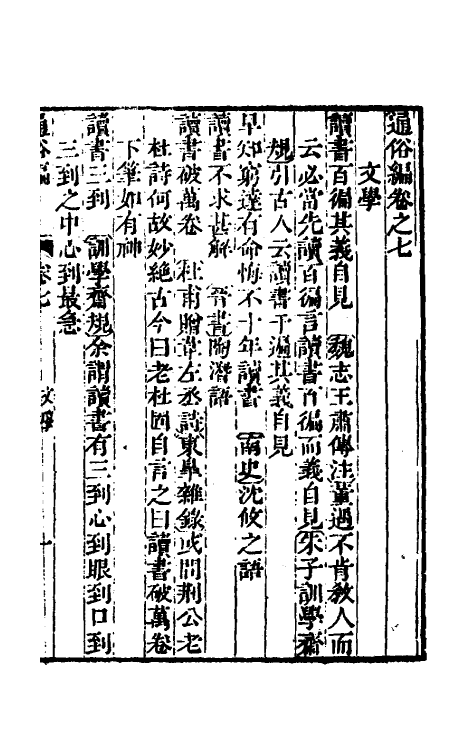 通俗編卷之七
文學
讀書百徧其義自見　魏志王肅傳注董遇不肯教人而
云必當先讀百徧言讀書百徧而義自見朱子訓學齋
規引古人云讀書千遍其義自見
早知窮達有命悔不十年讀書　南史沈攸之語
讀書不求甚解　晉書陶潛語
讀書破萬卷　杜甫贈韋左丞詩東臯雜錄或問荆公老
杜詩何故妙絕古今曰老杜固自言之曰讀書破萬卷
下筆如有神
讀書三到　訓學齋規余謂讀書有三到心到眼到口到
三到之中心到最急
通俗編　卷七　文學　一